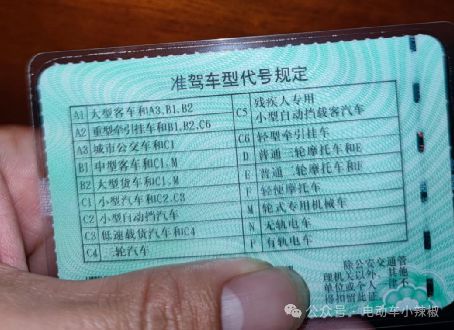 准驾车型代号规定
A1 大型客车和A3,B1,B2
A2 重型牵引挂车和B1,B2,C6
A3 城市公交车和C1
B1 中型客车和C1,M
B2 大型货车和C1,M
C1 小型汽车和C2,C3
C2 小型自动挡汽车
C3 低速载货汽车和C4
C4 三轮汽车
C5 残疾人专用
小型自动挡载客汽车
C6 轻型牵引挂车
D 普通三轮摩托车和E
E 普通二轮摩托车和F
F 轻便摩托车
M 轮式专用机械车
N 无轨电车
P 有轨电车
除公安交通管
理机关以外,其他
单位或个人 不
得扣留此证
公众号·电动车小辣椒